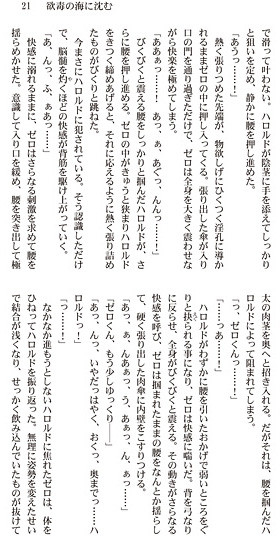 21　欲毒の海に沈む
で滑って叶わない。ハロルドが肉茎に手を添えてしっかり
と狙いを定め、静かに腰を押し進めた。
「あうっ……！」
熱く張りつめた先端が、物欲しげにひくつく淫孔に導か
れるままゼロの中に押し入ってくる。張り出した傘が入り
口の門を通り過ぎただけで、ゼロは全身を大きく震わせな
がら快楽を極めてしまう。
「ああぁっ……！　あっ、ぁ、あぐっ、んんっ……」
びくびくと震える腰をしっかりと掴んだハロルドが、さ
らに腰を押し進める。ゼロの中がきゅうと狭まりハロルド
をきつく締めあげると、それに応えるように熱く張り詰め
たものがびくりと跳ねた。
今まさにハロルドに犯されている。そう認識しただけ
で、脳髄を灼くほどの快感が背筋を駆け上がっていく。
「あ、んっ、ふ、ぁあっ……」
快感に溺れるままに、ゼロはさらなる刺激を求めて腰を
揺らめかせた。意識して入り口を緩め、腰を突き出して極
太の肉茎を奥へと招き入れる。だがそれは、腰を掴んだハ
ロルドによって阻まれてしまう。
「っ、ゼロくんっ……！」
「……っあ……！」
ハロルドがわずかに腰を引いたおかげで弱いところをぐ
りと抉られる事になり、ゼロは快感に喘いだ。背を弓なり
に反らせ、全身がびくびくと震える。その動きがさらなる
快感を呼び、ゼロは掴まれたままの腰をなんとか揺らし
て、硬く張り出した肉傘に内壁をこすりつける。
「あっ、ぁ、んあぁっ、う、あぁっ、ん、ぁっ……！」
「ゼロくん、もう少しゆっくり――」
「あっ、んっ、いやだっはやく、おくっ、奥までっ……ハ
ロルドっ！」
「っ……！」
なかなか進もうとしないハロルドに焦れたゼロは、体を
ひねってハロルドを振り返った。無理に姿勢を変えたせい
で結合が浅くなり、せっかく飲み込んでいたものが抜けて